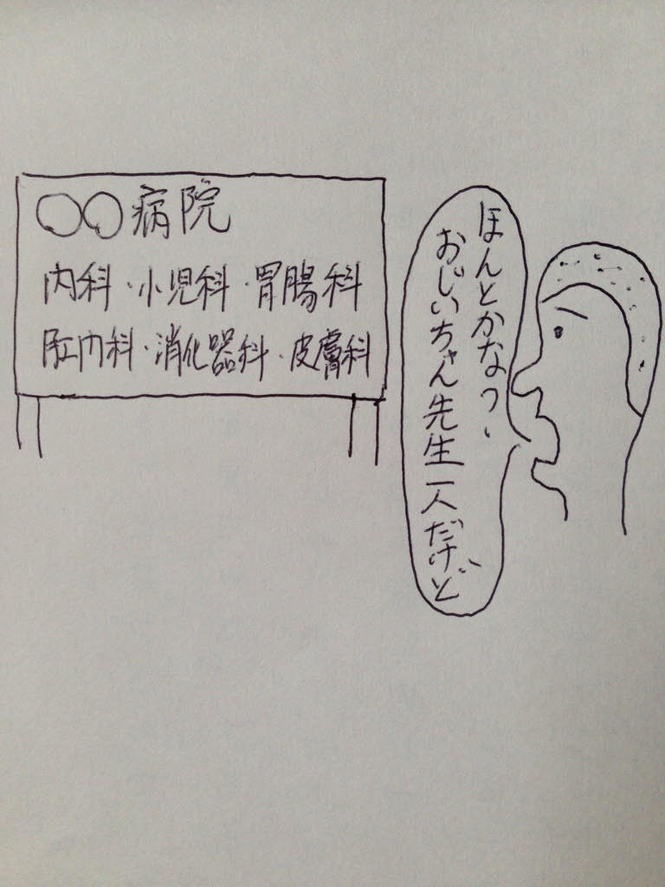 ○○病院
内科・小児科・胃腸科
肛内科・消化器科・皮膚科
ほんとかなっ、
おじいちゃん先生一人だけど